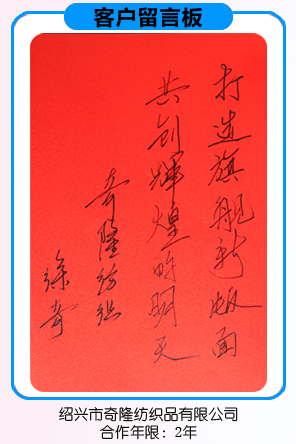 客户留言板
打造旗舰新版面
共创辉煌的明天
奇隆纺织
徐奇
绍兴市奇隆纺织品有限公司
合作年限：2年